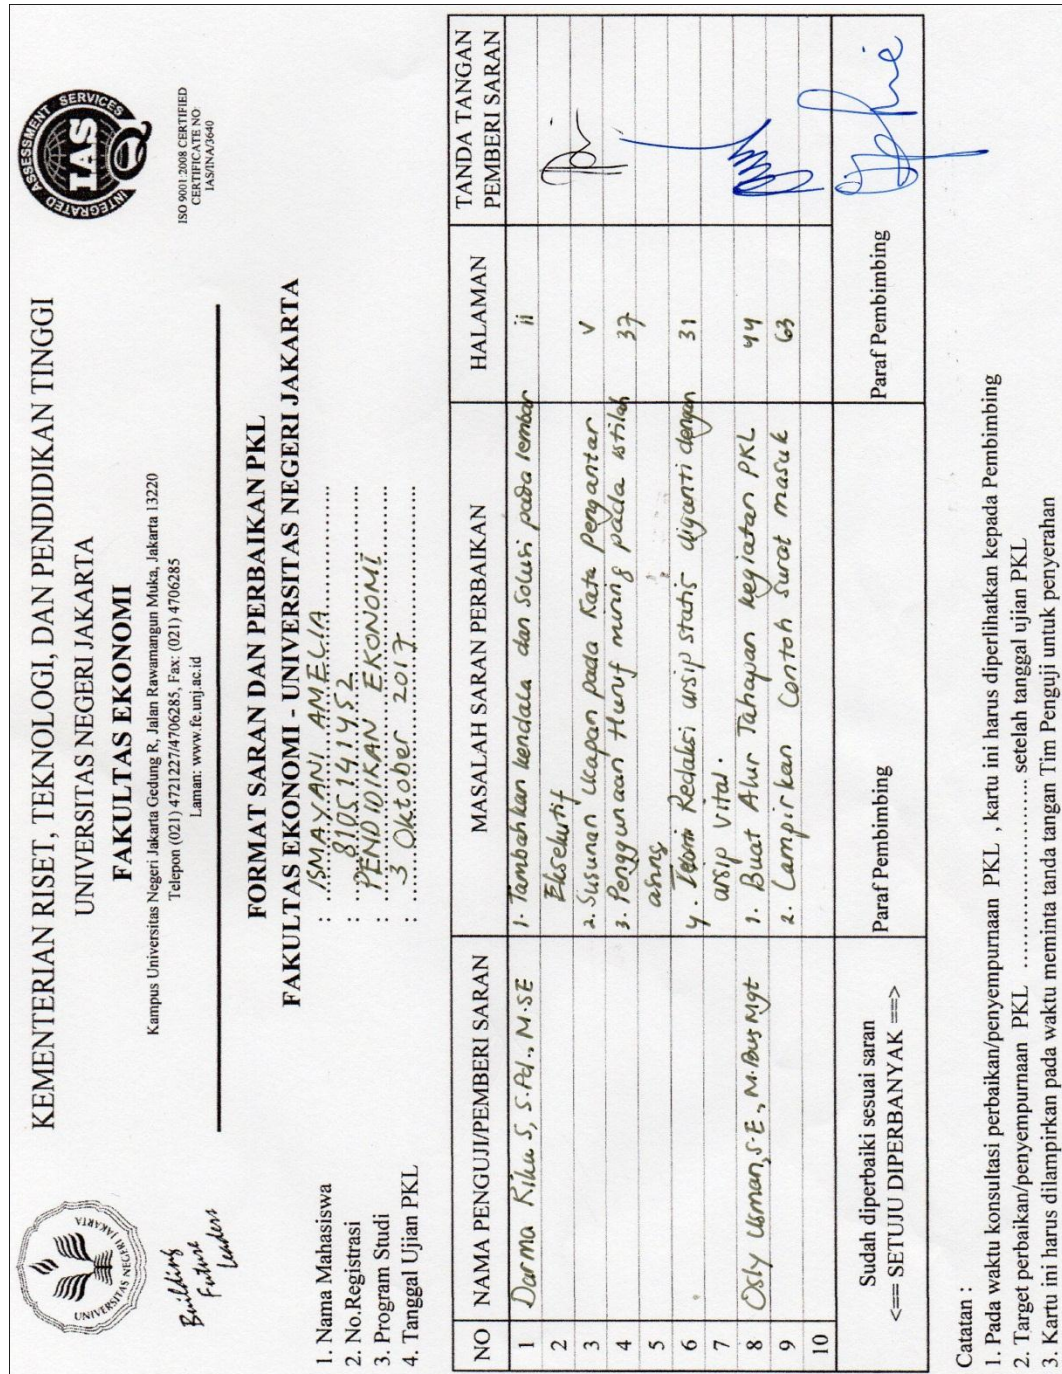 KEMENTERIAN RISET, TEKNOLOGI, DAN PENDIDIKAN TINGGI
UNIVERSITAS NEGERI JAKARTA
FAKULTAS EKONOMI
Kampus Universitas Negeri Jakarta Gedung R, Jalan Rawamangun Muka, Jakarta 13220
Telepon (021) 4721227/4706285, Fax: (021) 4706285
Laman: www.fe.unj.ac.id
UNIVERSITAS NEGERI JAKARTA
Building
Future
Leaders
INTEGRATED ASSESSMENT SERVICES
IAS
ISO 9001:2008 CERTIFIED
CERTIFICATE NO:
IAS/INA/3640
FORMAT SARAN DAN PERBAIKAN PKL
FAKULTAS EKONOMI - UNIVERSITAS NEGERI JAKARTA
1. Nama Mahasiswa : ISMAYANI AMELIA
2. No.Registrasi : 8105141452
3. Program Studi : PENDIDIKAN EKONOMI
4. Tanggal Ujian PKL : 3 Oktober 2017
NO NAMA PENGUJI/PEMBERI SARAN MASALAH SARAN PERBAIKAN HALAMAN TANDA TANGAN PEMBERI SARAN
1 Darma Rika S, S.Pd., M.SE 1. Tambahkan kendala dan Solusi pada lembar ii
2 Eksekutif
3 2. Susunan Ucapan pada Kata Pengantar v
4 3. Penggunaan Huruf miring pada istilah 37
5 asing
6 4. Redaksi arsip statis diganti dengan 31
7 arsip vital.
8 Osly Usman, S.E., M.Bus Mgt 1. Buat Alur Tahapan kegiatan PKL 44
9 2. Lampirkan Contoh Surat masuk 63
10
Sudah diperbaiki sesuai saran
<== SETUJU DIPERBANYAK ==>
Paraf Pembimbing
Paraf Pembimbing
Catatan :
1. Pada waktu konsultasi perbaikan/penyempurnaan PKL , kartu ini harus diperlihatkan kepada Pembimbing
2. Target perbaikan/penyempurnaan PKL ..................... setelah tanggal ujian PKL
3. Kartu ini harus dilampirkan pada waktu meminta tanda tangan Tim Penguji untuk penyerahan